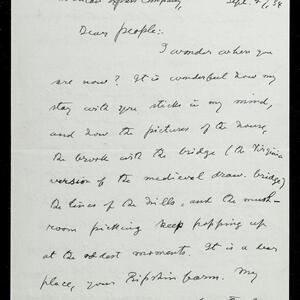 Express Company, Sept. 4, 34
Dear people:
I wonder when you
are now? It is wonderful how my
stay with you sticks in my mind,
and how the pictures of the house,
the brook with the bridge (the Virginia
version of the medieval draw-bridge)
the lines of the hills, and the mush-
room picking keep popping up
at the oddest moments. It is a dear
place, your Ripshin farm. My